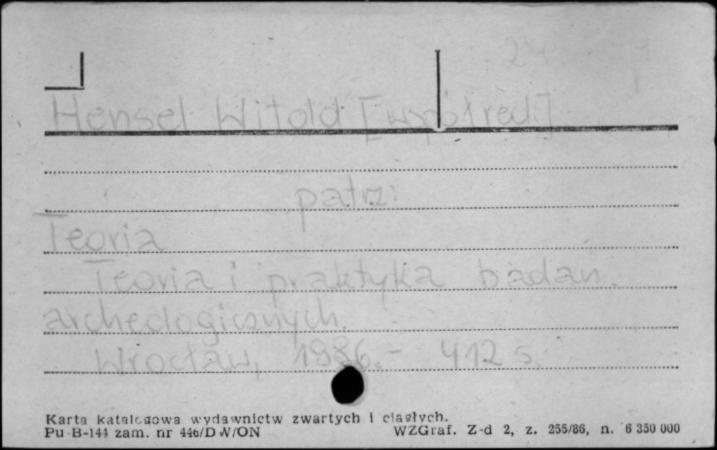 24
Hensel Witold [współred.]
patrz:
Teoria
Teoria i praktyka badań
archeologicznych.
Wrocław, 1986.- 412 s.
Karta katalogowa wydawnictw zwartych i ciągłych.
Pu-B-144 zam. nr 446/DW/ON WZGraf. Z-d 2, z. 255/86, n. 6 350 000